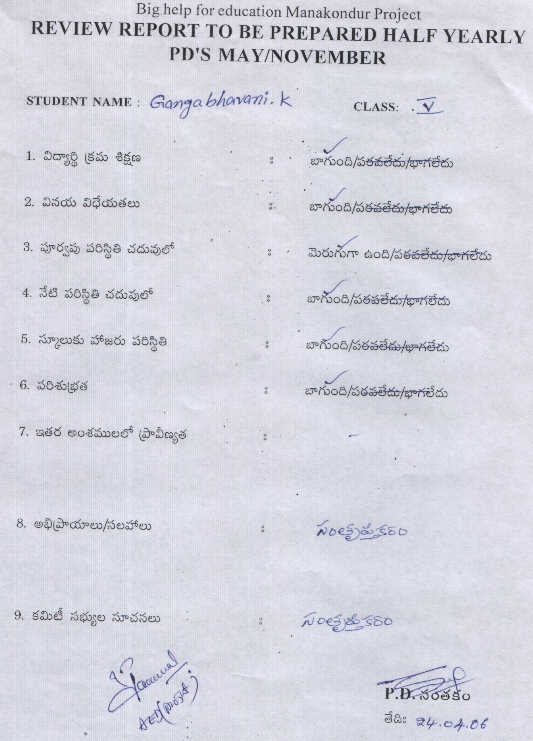 Big help for education Manakondur Project
REVIEW REPORT TO BE PREPARED HALF YEARLY
PD'S MAY/NOVEMBER
STUDENT NAME : Gangabhavani.K CLASS: V
1. విద్యార్థి క్రమ శిక్షణ : బాగుంది/పరవలేదు/భాగలేదు
2. వినయ విధేయతలు : బాగుంది/పరవలేదు/భాగలేదు
3. పూర్వపు పరిస్థితి చదువులో : మెరుగుగా ఉంది/పరవలేదు/భాగలేదు
4. నేటి పరిస్థితి చదువులో : బాగుంది/పరవలేదు/భాగలేదు
5. స్కూలుకు హాజరు పరిస్థితి : బాగుంది/పరవలేదు/భాగలేదు
6. పరిశుభ్రత : బాగుంది/పరవలేదు/భాగలేదు
7. ఇతర అంశములలో ప్రావీణ్యత : -
8. అభిప్రాయాలు/సలహాలు : సంతృప్తికరం
9. కమిటీ సభ్యుల సూచనలు : సంతృప్తికరం
P.D. సంతకం
తేది: 24.04.06